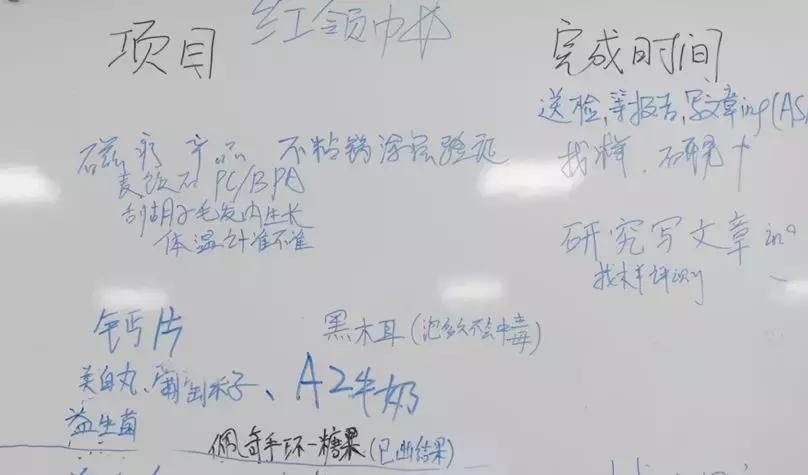 项目 红领巾 完成时间
送检,等报告,写文章ing(AS
磁 产品 不粘锅涂层验证 找样.研究
麦饭石 PC/BPA
刮胡子毛发内生长 研究写文章in
体温计准不准 找样评测
钙片 黑木耳(泡多久不会中毒)
美白丸、 A2牛奶
益生菌
佩奇手环-糖果(已出结果)